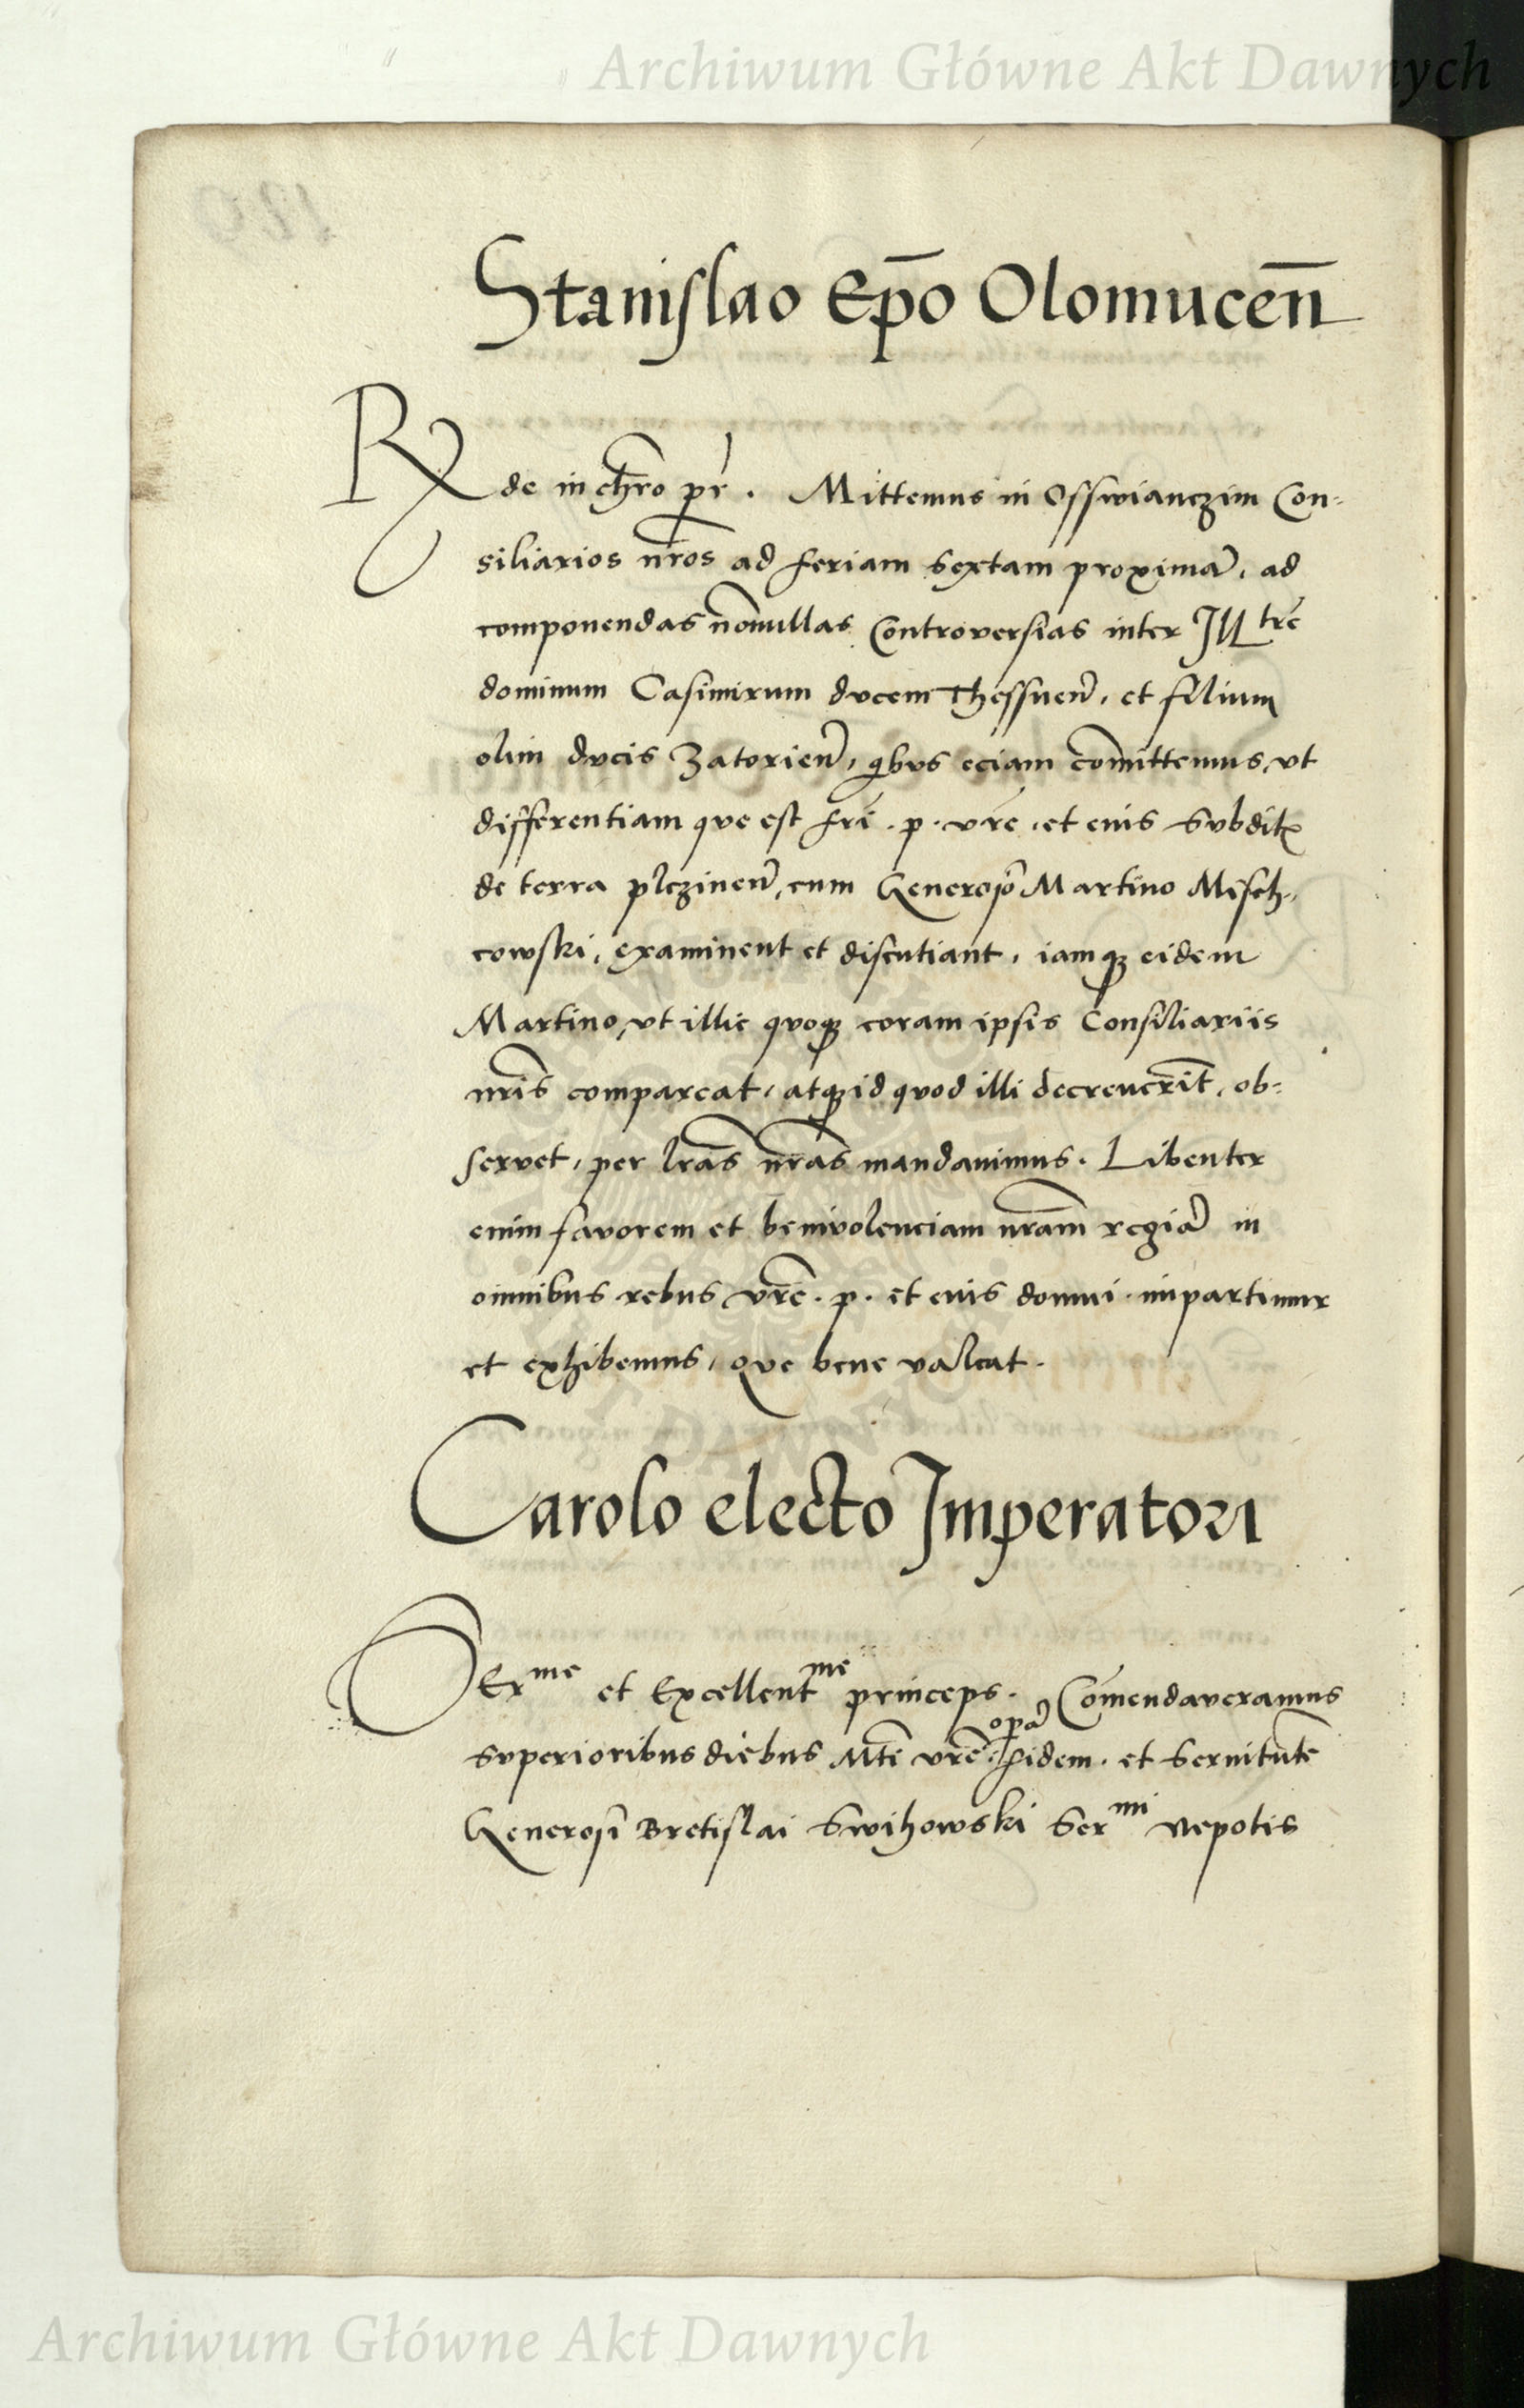 Archiwum Główne Akt Dawnych
Stanislao Ep̄o Olomucen̄
Rde in chr̄o pr̄. Mittemus in Osswianczim Con-
siliarios nr̄os ad feriam sextam proximā, ad
componendas nōnnullas Controversias inter Illtrē
dominum Casimirum ducem Thessnen̄, et filium
olim ducis Zatorien̄, qibus eciam cōmittemus, vt
differentiam que est fr̄i . p . vr̄e, et eius subdit
de terra plczinen̄, cum Generoso Martino Misch-
cowski, examinent et discutiant, iamqȝ eidem
Martino, vt illic quoqȝ coram ipsis Consiliariis
nr̄is compareat, atqȝ id quod illi decreverīt, ob-
servet, per lr̄as nr̄as mandavimus. Libenter
enim favorem et benivolenciam nr̄am regiā in
omnibus rebus vr̄e . p . et eius domui impartimur
et exhibemus, que bene valeat.
Carolo electo Imperatori
SErme et Excellentme princeps. Cōmendaveramus
superioribus diebus Mti vr̄e, opā fidem. et servitutē
Generosi Bretislai Swihowski Sermi Nepotis
Archiwum Główne Akt Dawnych